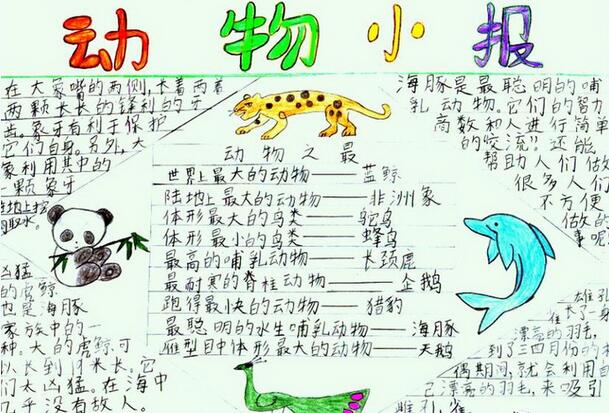 动物小报
在大象嘴的两侧,长着两着
两颗长长的锋利的牙
齿。象牙有利于保护
它们自身。另外,大
象利用其中的
一颗象牙
在地上挖
取水。
凶猛
的虎鲸
也是海豚
家族中的一
种。大的虎鲸可
以长到10米长。它
们太凶猛。在海中
几乎没有敌人。
动物之最
世界上最大的动物——蓝鲸
陆地上最大的动物——非洲象
体形最大的鸟类——鸵鸟
体形最小的鸟类——蜂鸟
最高的哺乳动物——长颈鹿
最耐寒的脊柱动物——企鹅
跑得最快的动物——猎豹
最聪明的水生哺乳动物——海豚
雁型目中体形最大的动物——天鹅
海豚是最聪明的哺
乳动物。它们的智力
商数和人进行简单
的“交流”还能
帮助人们做
很多人们
不方便
做的
事呢
雄孔
长了一身
漂亮的羽毛,
到了三四月份的
偶期间,就会利用自
己漂亮的羽毛,来吸引
雌孔雀